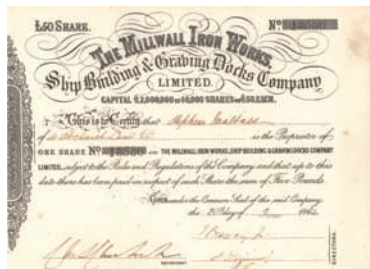 £50 SHARE. No
THE MILLWALL IRON WORKS,
Ship Building & Graving Docks Company
LIMITED.
CAPITAL £2,000,000 IN 40,000 SHARES OF £50 EACH.
This is to Certify that Stephen
of is the Proprietor of
ONE SHARE No THE MILLWALL IRON WORKS, SHIP BUILDING & GRAVING DOCKS COMPANY
LIMITED, subject to the Rules and Regulations of the Company and that up to this
date there has been paid in respect of such Share the sum of Five Pounds
Given under the Common Seal of the said Company
the Day of 186
SECRETARY
DIRECTORS.